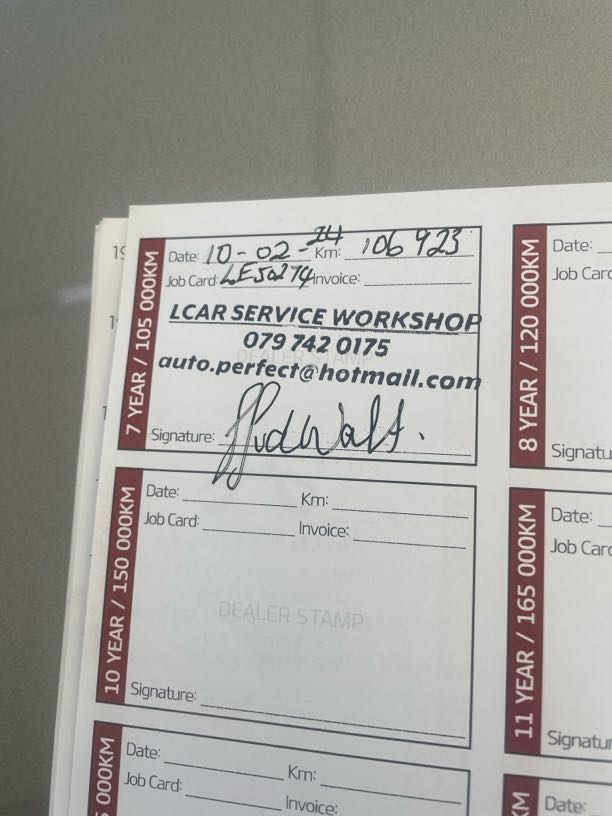 7 YEAR / 105 000KM
Date: 10-02-24 Km: 106 923
Job Card: LE50274 Invoice:
DEALER STAMP
LCAR SERVICE WORKSHOP
079 742 0175
auto.perfect@hotmail.com
Signature:
8 YEAR / 120 000KM
Date:
Job Card
Signatu
10 YEAR / 150 000KM
Date: Km:
Job Card: Invoice:
DEALER STAMP
Signature:
11 YEAR / 165 000KM
Date:
Job Card
Signatur
000KM
Date: Km:
Job Card: Invoice:
KM
Date: